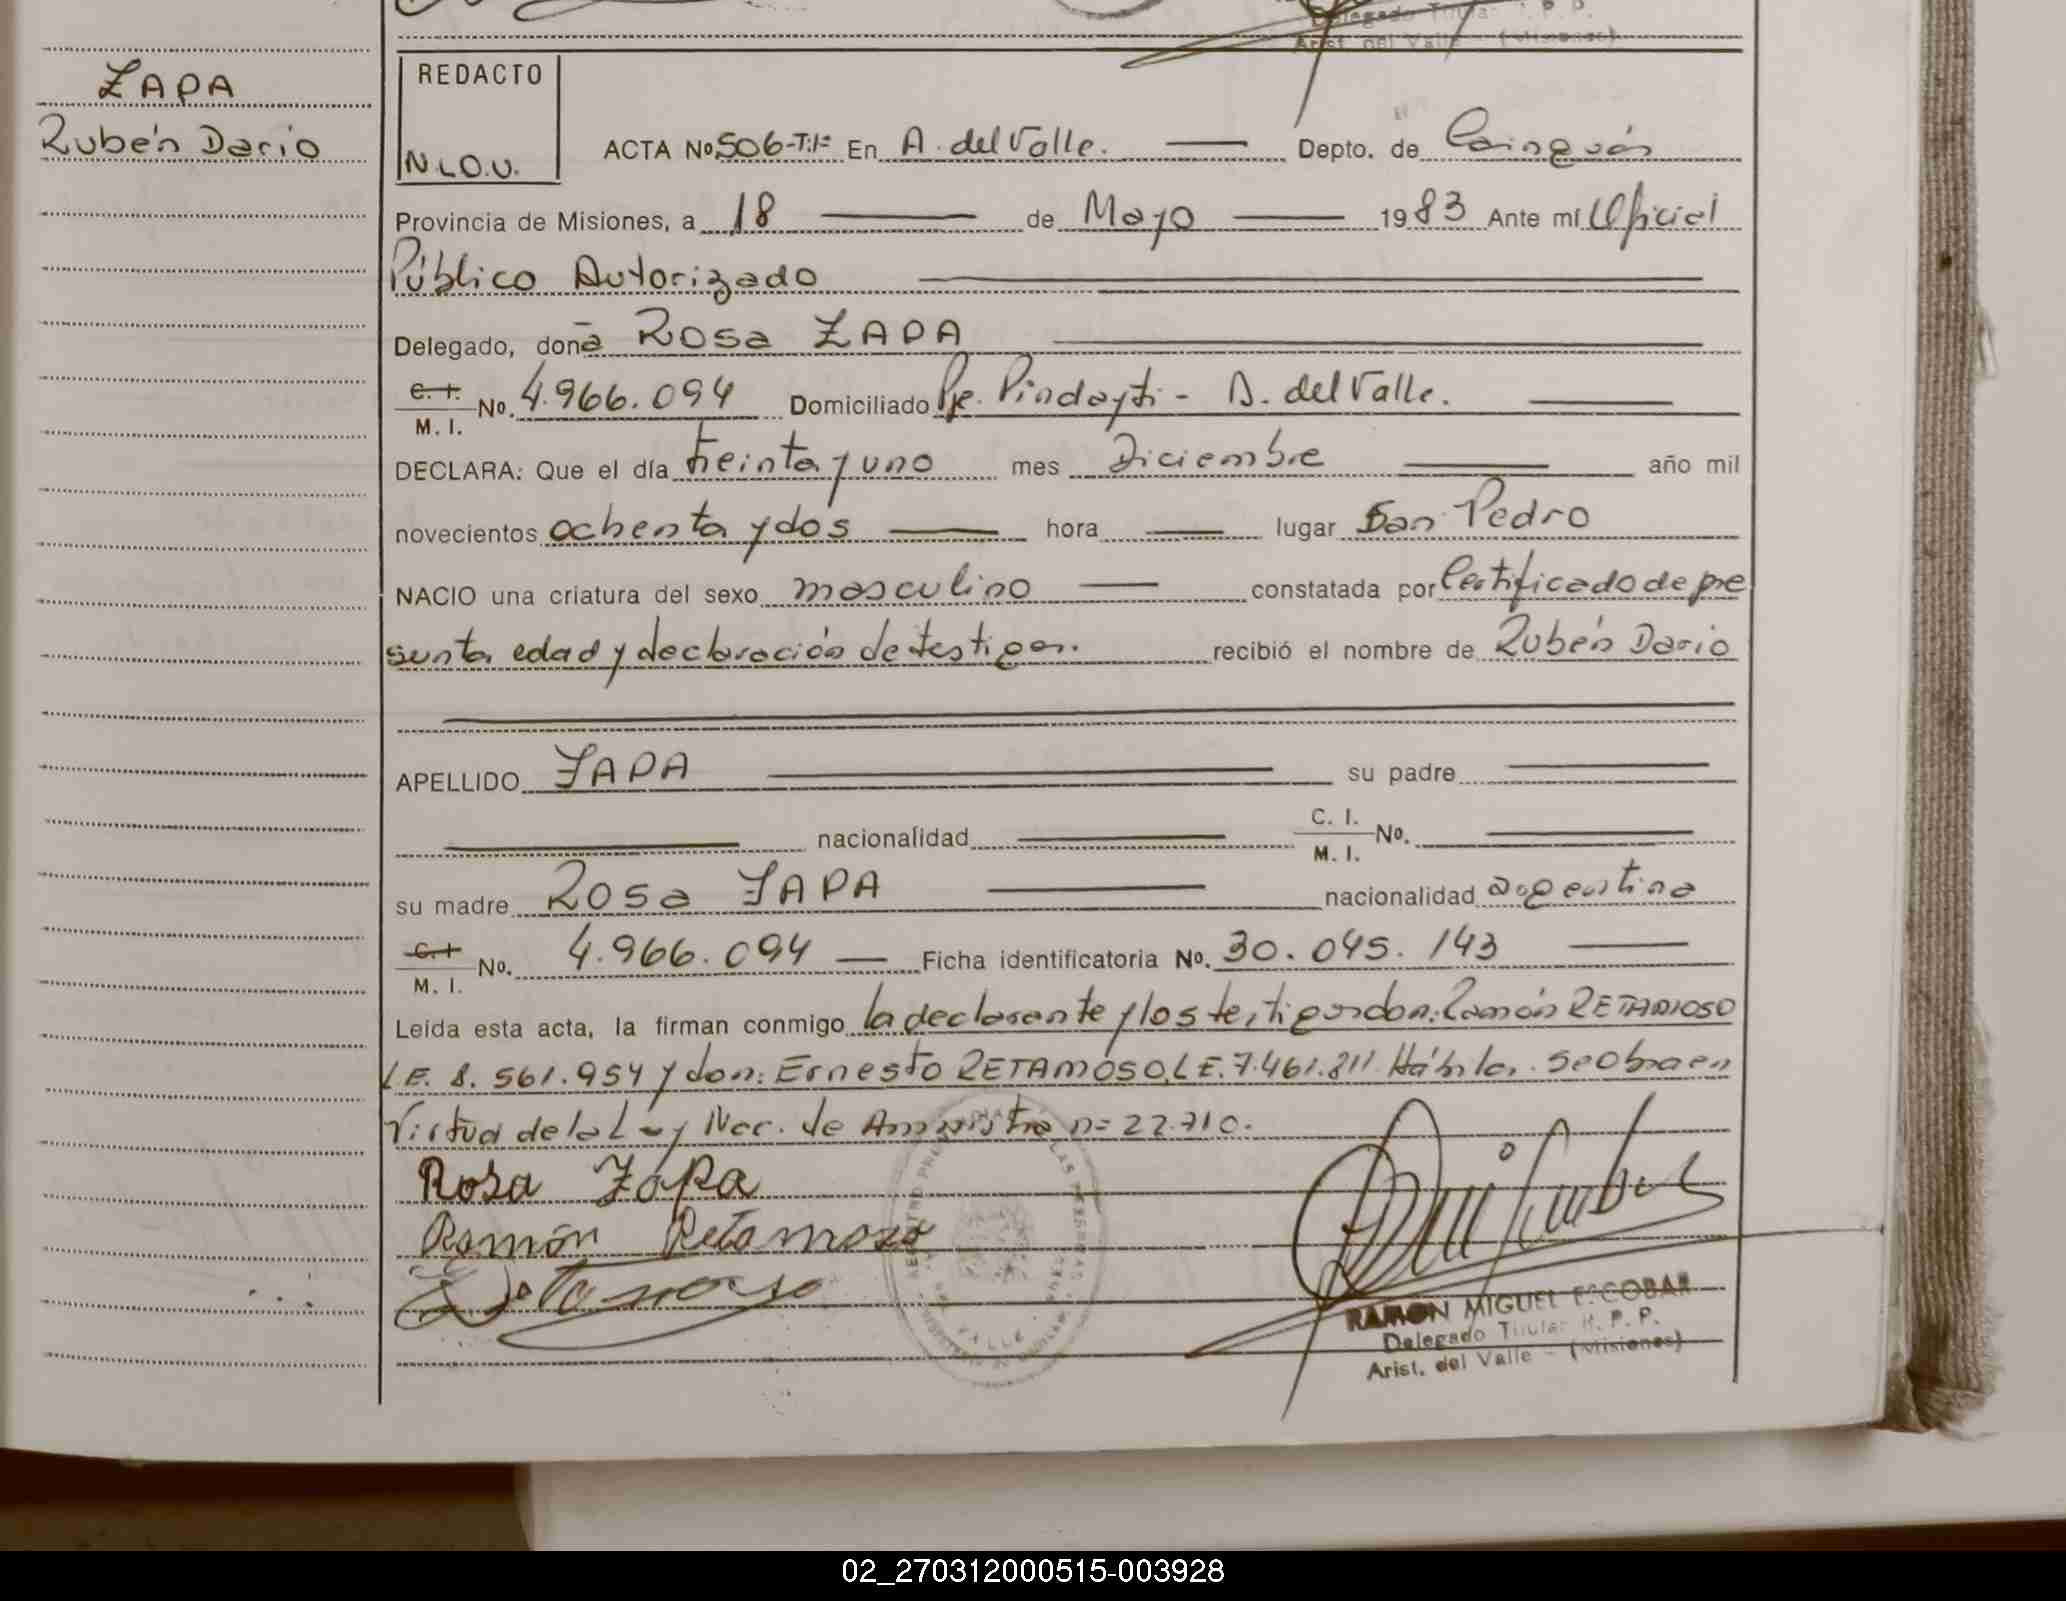 Delegado Titular R. P. P.
Arist. del Valle - (Misiones)
ZAPA
Rubén Dario
REDACTO
N.L.O.V.
ACTA No. 506-T:1º En A. del Valle. Depto. de Cainguás
Provincia de Misiones, a 18 de Mayo 1983 Ante mí Oficial
Público Autorizado
Delegado, doña Rosa ZAPA
C. I. M. I. No. 4.966.094 Domiciliado Pje. Pindayti - A. del Valle.
DECLARA: Que el día treinta y uno mes Diciembre año mil
novecientos ochenta y dos hora lugar San Pedro
NACIO una criatura del sexo masculino constatada por Certificado de pre
sunta edad y declaración de testigos. recibió el nombre de Rubén Dario
APELLIDO ZAPA su padre
nacionalidad C. I. M. I. No.
su madre Rosa ZAPA nacionalidad argentina
C. I. M. I. No. 4.966.094 Ficha identificatoria No. 30.045.143
Leída esta acta, la firman conmigo la declarante y los testigos don: Ramón RETAMOSO
L.E. 8.561.954 y don: Ernesto RETAMOSO, L.E. 7.461.811. Hábiles. Se obra en
Virtud de la Ley Nac. de Amnistia nº 22.710.
Rosa Zapa
Ramón Retamoso
Retamoso
RAMON MIGUEL ESCOBAR
Delegado Titular R. P. P.
Arist. del Valle - (Misiones)
02_270312000515-003928